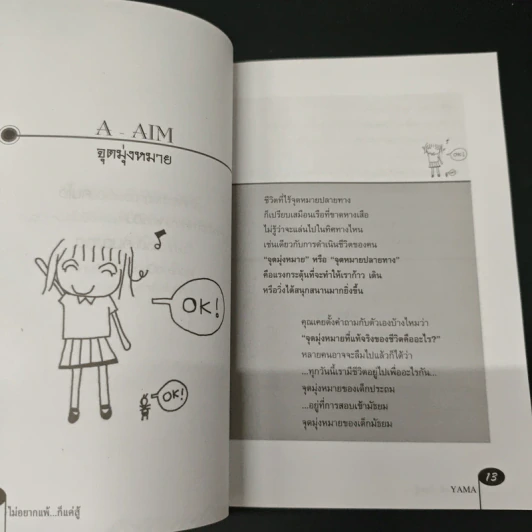 A - AIM
จุดมุ่งหมาย
OK!
OK!
ไม่อยากแพ้...ก็แค่สู้
OK!
ชีวิตที่ไร้จุดหมายปลายทาง
ก็เปรียบเสมือนเรือที่ขาดหางเสือ
ไม่รู้ว่าจะแล่นไปในทิศทางไหน
เช่นเดียวกับการดำเนินชีวิตของคน
"จุดมุ่งหมาย" หรือ "จุดหมายปลายทาง"
คือแรงกระตุ้นที่จะทำให้เราก้าว เดิน
หรือวิ่งได้สนุกสนานมากยิ่งขึ้น
คุณเคยตั้งคำถามกับตัวเองบ้างไหมว่า
"จุดมุ่งหมายที่แท้จริงของชีวิตคืออะไร?"
หลายคนอาจจะลืมไปแล้วก็ได้ว่า
...ทุกวันนี้เรามีชีวิตอยู่ไปเพื่ออะไรกัน...
จุดมุ่งหมายของเด็กประถม
...อยู่ที่การสอบเข้ามัธยม
จุดมุ่งหมายของเด็กมัธยม
YAMA
13